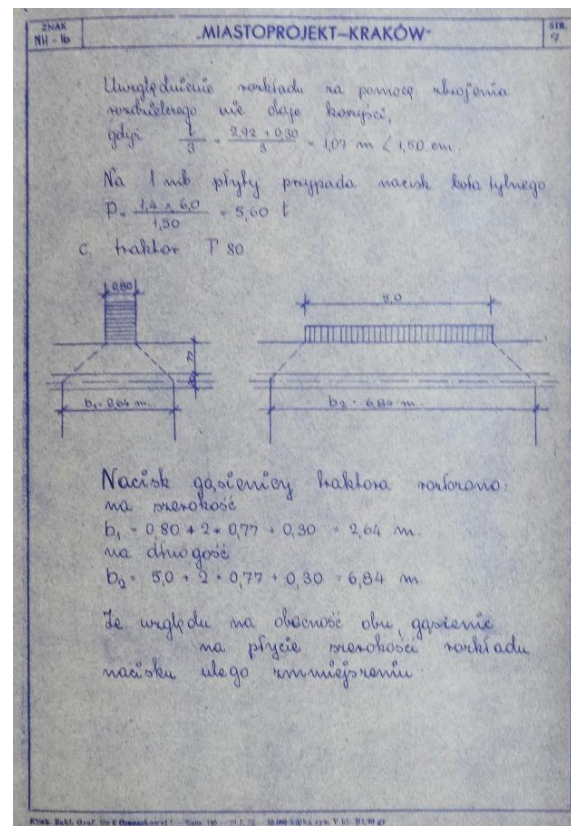 ZNAK
NH-16
„MIASTOPROJEKT–KRAKÓW”
STR.
7
Uwzględnienie rozkładu za pomocą zbrojenia
rozdzielczego nie daje korzyści,
gdyż l/3 = 2,92 + 0,30/3 = 1,07 m < 1,50 cm.
Na 1 mb płyty przypada nacisk koła tylnego
P = 1,4 x 6,0/1,50 = 5,60 t
c. traktor T 80
0,80
5,0
77
b₁ = 2,64 m.
b₂ = 6,84 m.
Nacisk gąsienicy traktora rozłożono:
na szerokość
b₁ = 0,80 + 2 * 0,77 + 0,30 = 2,64 m.
na długość
b₂ = 5,0 + 2 * 0,77 + 0,30 = 6,84 m.
Ze względu na obecność obu gąsienic
na płycie szerokości rozkładu
nacisku ulega zmniejszeniu: